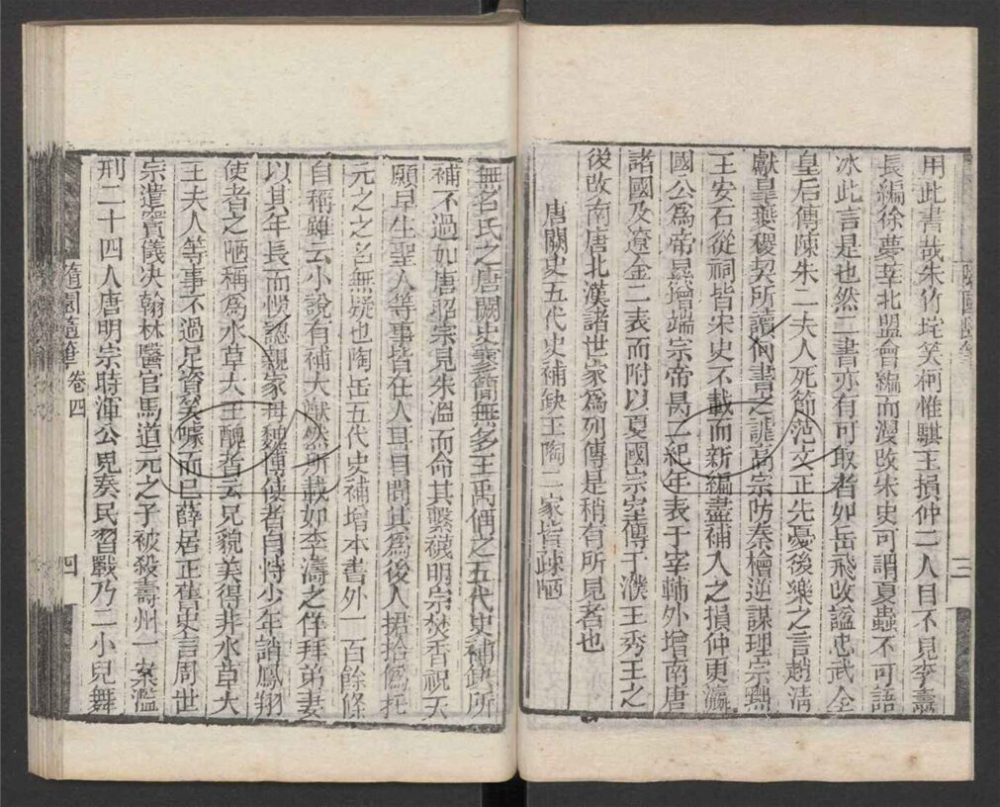 用此書哉朱竹垞笑柯惟騏王損仲二人目不見李燾
長編徐夢莘北盟會編而漫改宋史可謂夏蟲不可語
冰此言是也然二書亦有可取者如岳飛改諡忠武全
皇后傳陳朱二夫人死節范文正先憂後樂之言趙清
獻皇䕫稷契所讀何書之誰高宗防秦檜逆謀理宗黜
王安石從祀皆宋史不載而新編盡補入之損仲更瀛
國公為帝㬎增端宗帝昺二紀年表于宰輔外增南唐
諸國及遼金二表而附以夏國宗室傳于濮王秀王之
後改南唐北漢諸世家為列傳是稍有所見者也
唐闕史五代史補缺王陶二家皆疎陋
無名氏之唐闕史寥簡無多王禹偁之五代史補缺所
補不過如唐昭宗見朱溫而命其繫襪明宗焚香祝天
願早生聖人等事皆在人耳目間其為後人捃拾偽托
元之之名無疑也陶岳五代史補增本書外一百餘條
自稱雖云小說有補大猷然所載如李濤之佯拜弟妻
以其年長而悞認親家母魏博使者自恃少年誚鳳翔
使者之陋稱為水草大王醜者云兄貌美得非水草大
王夫人等事不過足資笑噱而已薛居正舊史言周世
宗遣竇儀決翰林醫官馬道元之子被殺壽州一案濫
刑二十四人唐明宗時渾公兒奏民習戰乃二小兒舞
隨園隨筆 卷四
四
三